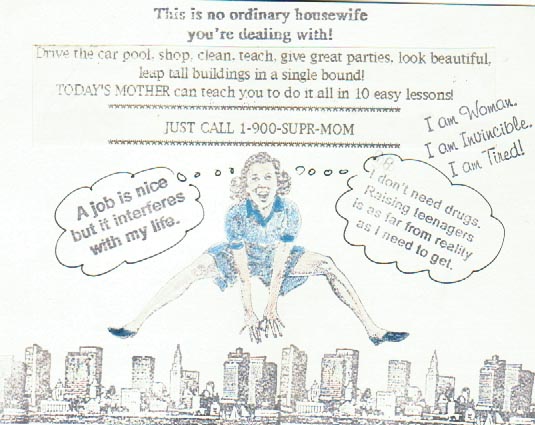 This is no ordinary housewife
you're dealing with!
Drive the car pool, shop, clean, teach, give great parties, look beautiful,
leap tall buildings in a single bound!
TODAY'S MOTHER can teach you to do it all in 10 easy lessons!
************************************************
************************************************
JUST CALL 1-900-SUPR-MOM
************************************************
I am Woman.
I am Invincible.
I am Tired!
A job is nice
but it interferes
with my life.
I don't need drugs.
Raising teenagers
is as far from reality
as I need to get.